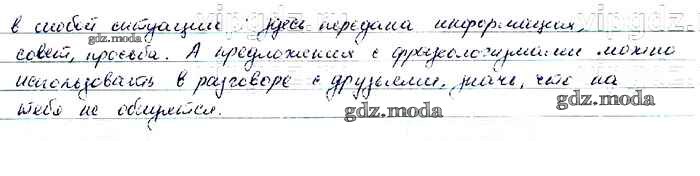 в любой ситуации. Здесь передана информация,
совет, просьба. А предложения с фразеологизмами можно
использовать в разговоре с друзьями, зная, что на
тебя не обидятся.
gdz.moda
gdz.moda
gdz.moda